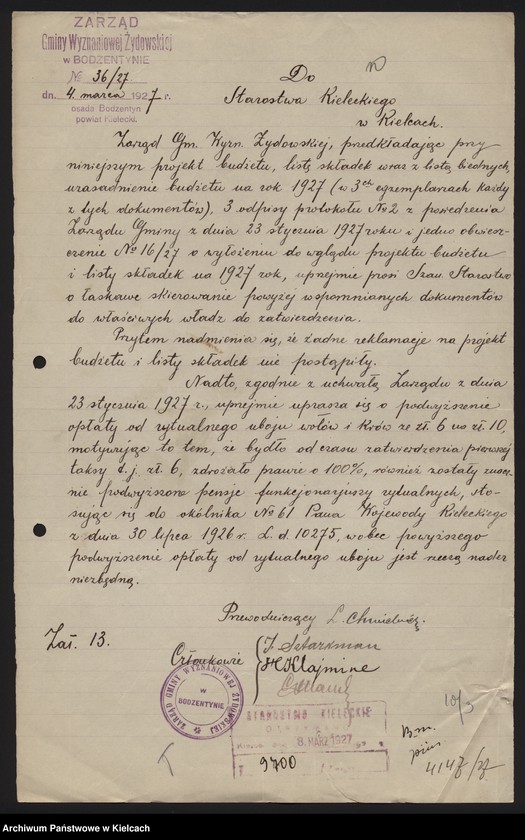 ZARZĄD
Gminy Wyznaniowej Żydowskiej
w BODZENTYNIE
№ 36/27
dn. 4. marca 1927 r.
osada Bodzentyn
powiat Kielecki.
Do
Starostwa Kieleckiego
w Kielcach.
Zarząd Gm. Wyzn. Żydowskiej, przedkładając przy
niniejszym projekt budżetu, listę składek wraz z listą biednych,
uzasadnienie budżetu na rok 1927 (w 3ch egzemplarzach każdy
z tych dokumentów), 3 odpisy protokółu №2 z posiedzenia
Zarządu Gminy z dnia 23 stycznia 1927 roku i jedno obwiesz-
czenie № 16/27 o wyłożeniu do wglądu projektu budżetu
i listy składek na 1927 rok, uprzejmie prosi Szan. Starostwo
o łaskawe skierowanie powyżej wspomnianych dokumentów
do właściwych władz do zatwierdzenia.
Przytem nadmienia się, że żadne reklamacje na projekt
budżetu i listy składek nie postąpiły.
Nadto, zgodnie z uchwałą Zarządu z dnia
23 stycznia 1927 r., uprzejmie uprasza się o podwyższenie
opłaty od rytualnego uboju wołów i krów ze zł. 6 na zł. 10,
motywując to tem, że bydło od czasu zatwierdzenia pierwszej
taksy t. j. zł. 6, zdrożało prawie o 100%, również zostały znacz-
nie podwyższone pensje funkcjonarjuszy rytualnych, sto-
sując się do okólnika № 61 Pana Wojewody Kieleckiego
z dnia 30 lipca 1926 r. L. d. 10275, wobec powyższego
podwyższenie opłaty od rytualnego uboju jest rzeczą nader
niezbędną.
Przewodniczący L.
Zał. 13.
Członkowie
J. Sztarkman
H Klajmine
ZARZĄD GMINY WYZNANIOWEJ ŻYDOWSKIEJ
W
BODZENTYNIE
STAROSTWO KIELECKIE
8. MARZ 1927
9700
10/3
4147/27
Archiwum Państwowe w Kielcach